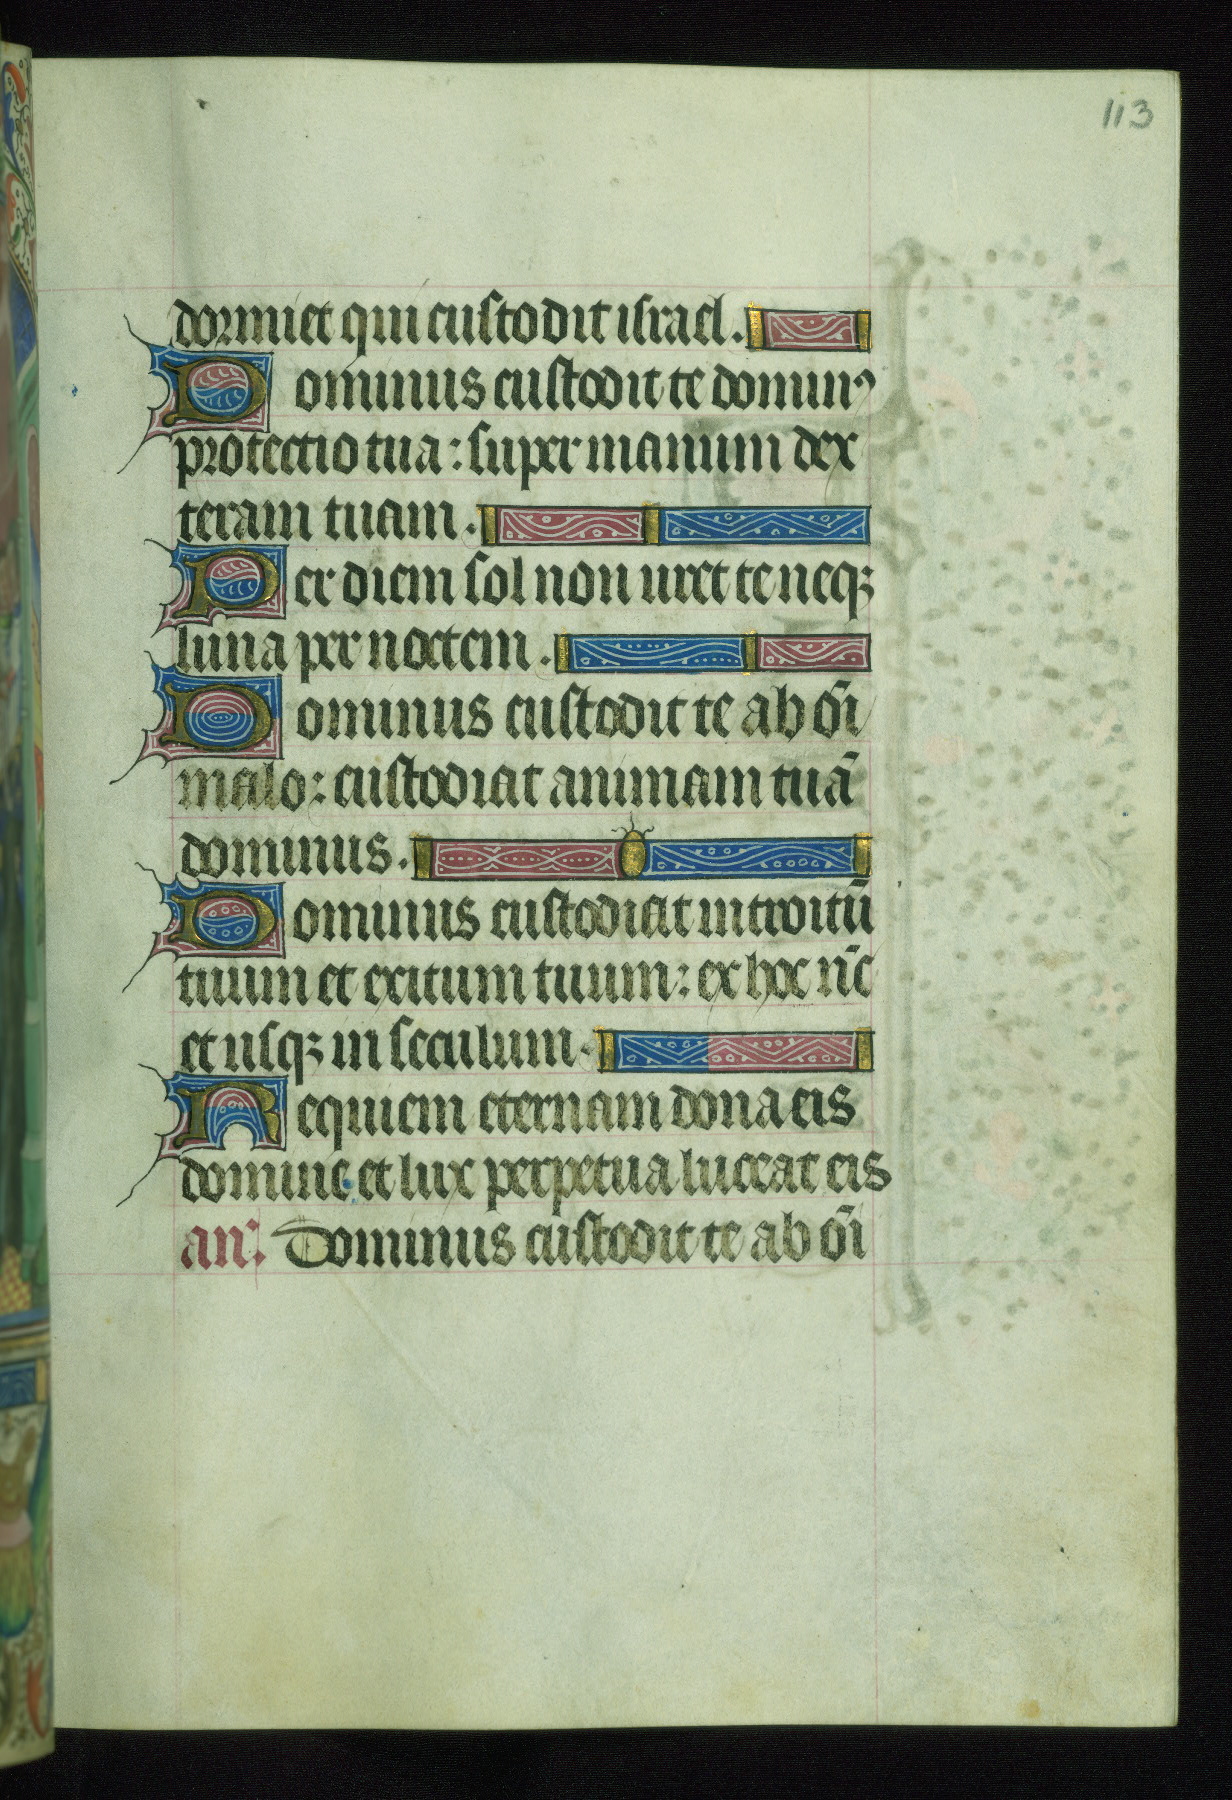 113
dormiet qui custodit israel.
Dominus custodit te dominꝰ
protectio tua: super manum dex
teram tuam.
Per diem sol non uret te neqꝫ
luna per noctem.
Dominus custodit te ab oı̄
malo: custodiat animam tuā
dominus.
Dominus custodiat introitū
tuum et exitum tuum: ex hoc nc̄
et usqꝫ in seculum.
Requiem eternam dona eis
domine et lux perpetua luceat eis
an͛. Dominus custodit te ab oı̄